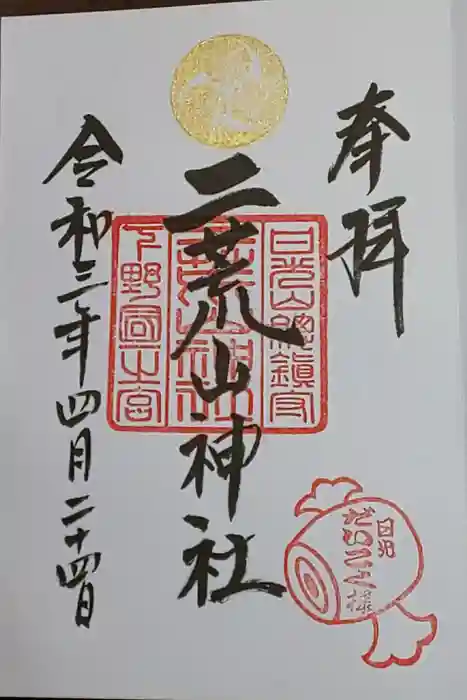 奉拝
日光山總鎮守
二荒山神社
下野國一之宮
令和三年四月二十四日
日光
だいこく様